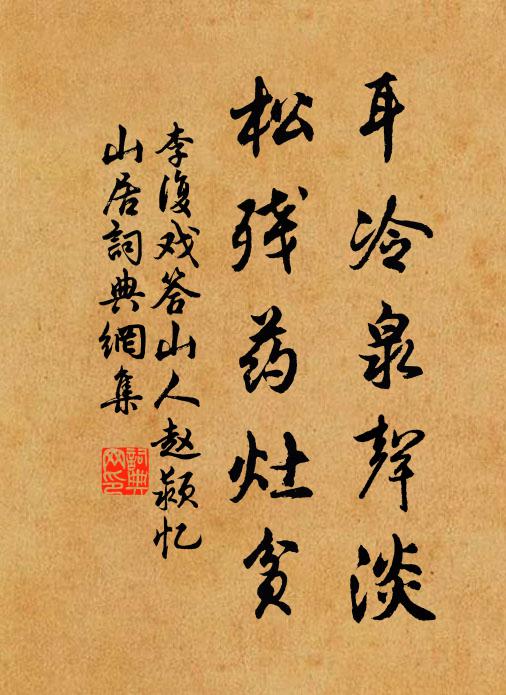 耳冷泉聲淡
松残药灶贫
李復戏答山人赵颍忆
山居詞典網集
詞典
网印